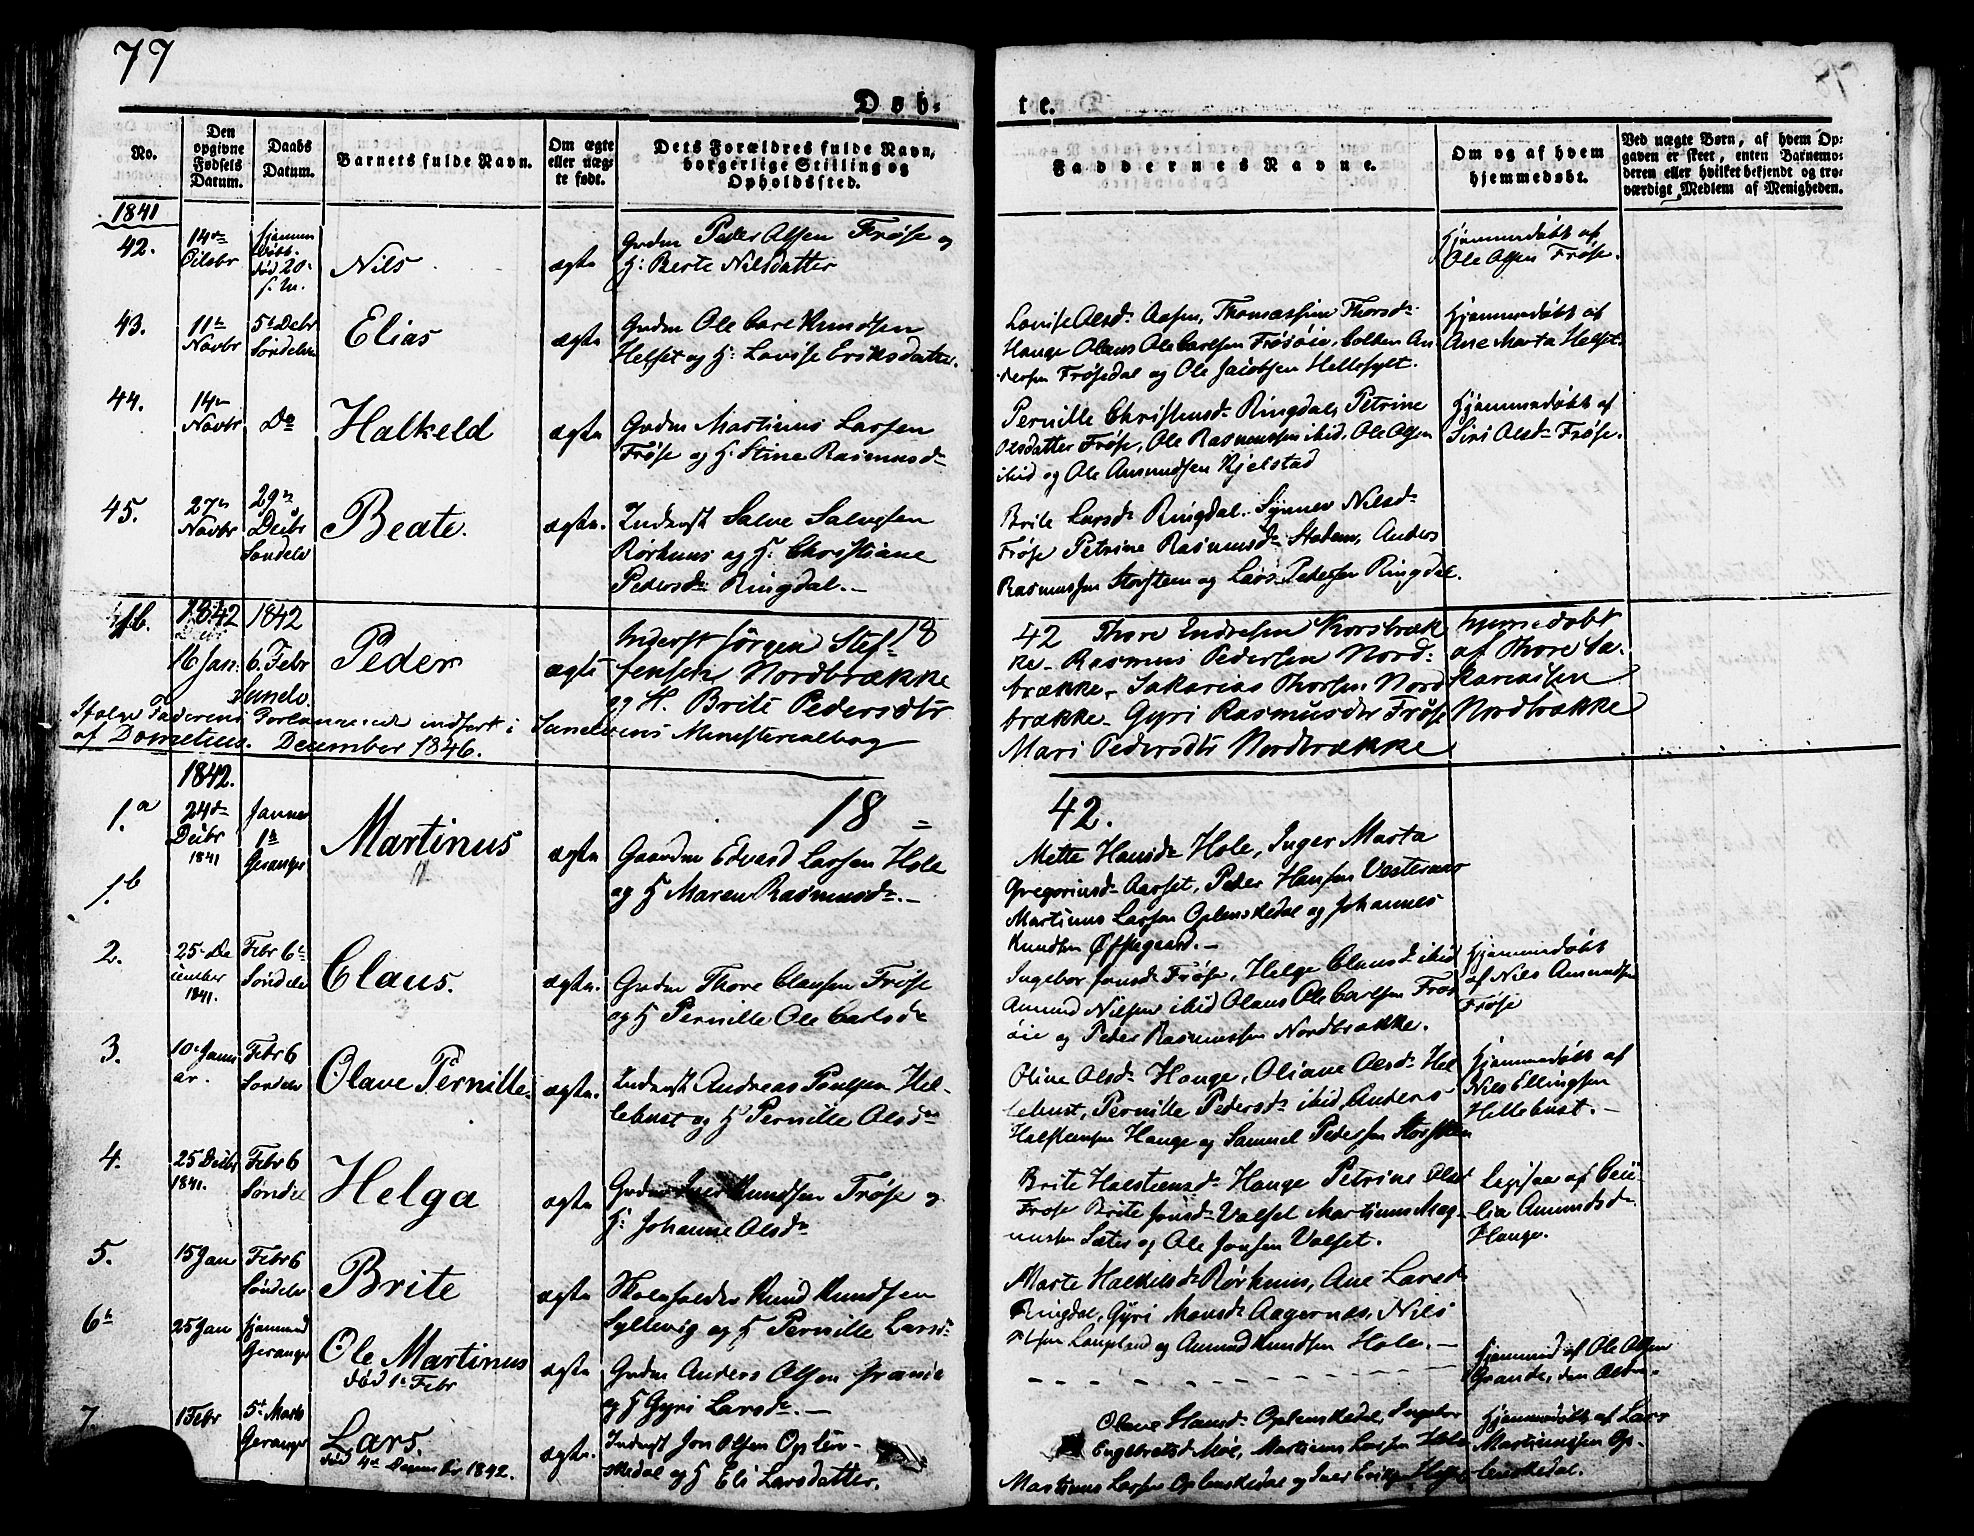 77
78
Døb-
te.
No.
Den opgivne Fødsels Datum.
Daabs Datum.
Barnets fulde Navn.
Om ægte eller uægte født.
Dets Forældres fulde Navn, borgerlige Stilling og Opholdssted.
Faddernes Navne.
Om og af hvem hjemmedøbt.
Ved uægte Børn, af hvem Opgaven er skeet, enten Barnemoderen eller hvilket bekjendt og troværdigt Medlem af Menigheden.
1841
42.
14de
Nils
ægte
Peder Olsen Frøse og
H: Berte Nilsdatter
Hjemmedøbt af
Ole Olsen Frøse.
43.
11te Novbr
5te Debr
Elias
ægte
Ole Carl Knudsen
Helset og H: Lovise Eriksdatter.
Lovise Olsdr Aasen, Thomassine Thorsdr
Hauge Olaus Ole Carlsen Frøsøie, Colben An-
dersen Frøsedal og Ole Jacobsen Hellesylt.
Hjemmedøbt af
Ane Marta Helset.
44.
14de Novbr
Do
Halkeld
ægte
Martinus Larsen
Frøse og H. Stine Rasmusdr
Pernille Christensdr Ringdal, Petrine
Olsdatter Frøse, Ole Rasmussen ibid, Ole Olsen
ibid og Ole Amundsen Kjelstad
Hjemmedøbt af
Siri Olsdr Frøse.
45.
27de Novbr
29de
Beate.
ægte.
Inderst Salve Salvesen
Rørhuus og H. Christiane
Pedersdr Ringdal.-
Brite Larsdr Ringdal. Synnev Nilsdr
Frøse Petrine Rasmusdr Stadem, Anders
Rasmussen Storstem og Lars Pedersen Ringdal.
1842
1842
16 Jan.
6. Febr
Peder
ægte
Inderst Jørgen Stef-
fensen Nordbrække
og H. Brite Pedersdtr
18
42
Thore Endresen Korsbræk
ke- Rasmus Pedersen Nord-
brække, Sakarias Thorsen Nord
brække- Gyri Rasmusdtr Frøse
Mari Pedersdtr Nordbrække
hjemmedøbt
af Thore Sa-
kariassen
Nordbrække
Ifølge Faderens Forlangende indført i Sunelvens Ministerialbog
af Dometius. December 1846.
1842.
18
42.
1.a
24de Debr 1841
Januar 1te Geranger
Martinus
ægte
Gaardm Edvard Larsen Hole
og H Maren Rasmusdr.-
Mette Hansdr Hole, Inger Marta
Gregoriusdr Aarset, Peder Hansen Vesteraas
Martinus Larsen Oplenskedal og Johannes
Knudsen
1.b
2.
25de De
cember
1841.
Febr 6te
Claus.
ægte.
Thore Clausen Frøse
og H Pernille Ole Carlsdr
Ingebor Jonsdr Frøse, Helge Clausdr ibid
Amund Nilsen ibid Olaus Ole Carlsen Frøs
øie og Peder Rasmussen Nordbrække.
Hjemmedøbt
af Nils Amundsen
Frøse
3.
10de Janu
ar.
Febr 6
Olave Pernille.
ægte.
Inderst Andreas Poulsen Hel-
lebust og H Pernille Olsdr
Oline Olsdr Hauge, Oliane Olsdr Hel
lebust, Pernille Pedersdr ibid, Anders
Halsteinsen Hauge og Samuel Pedersen
Hjemmedøbt af
Nils Ellingsen
Hellebust.-
4.
25 Debr
1841.
Febr 6
Helga
ægte
Iver Knudsen Frøse og
H: Johanne Olsdr
Brite Halsteensdr Hauge Petrine Olsd
Frøse Brite Jonsdr Valset Martinus Mag-
nussen Sæter og Ole Jonsen Valset.
af
Amundsdr
Hauge.
5.
15 Jan
Febr 6
Brite
ægte
Skoleholder Knud Knudsen
Syltevig og H Pernille Larsdr
Marte Halkelsdr Rørhuus, Ane Larsdr
Ringdal, Gyri Monsdr Aagernes, Nils
Olsen Langeland og Amund Knudsen Hole.-
6te
25 Jan
Geranger
Ole Martinus
død 1te Febr
ægte
Anders Olsen
og H Gyri Larsdr.-
- - - - - - - - - -
af Ole Olsen
Grande,
7
1 Febr
5te Marts
Geranger
Lars.
ægte.
Inderst Jon Olsen Oplen-
skedal og H Eli Larsdatter.
Olave Hansdr Oplenskedal, Ingebor
Engebretsdr Møe, Martinus Larsen Hole
Martinus Larsen Oplenskedal og Iver
Hjemmedøbt af Lars
Martinussen Op-
lenskedal.